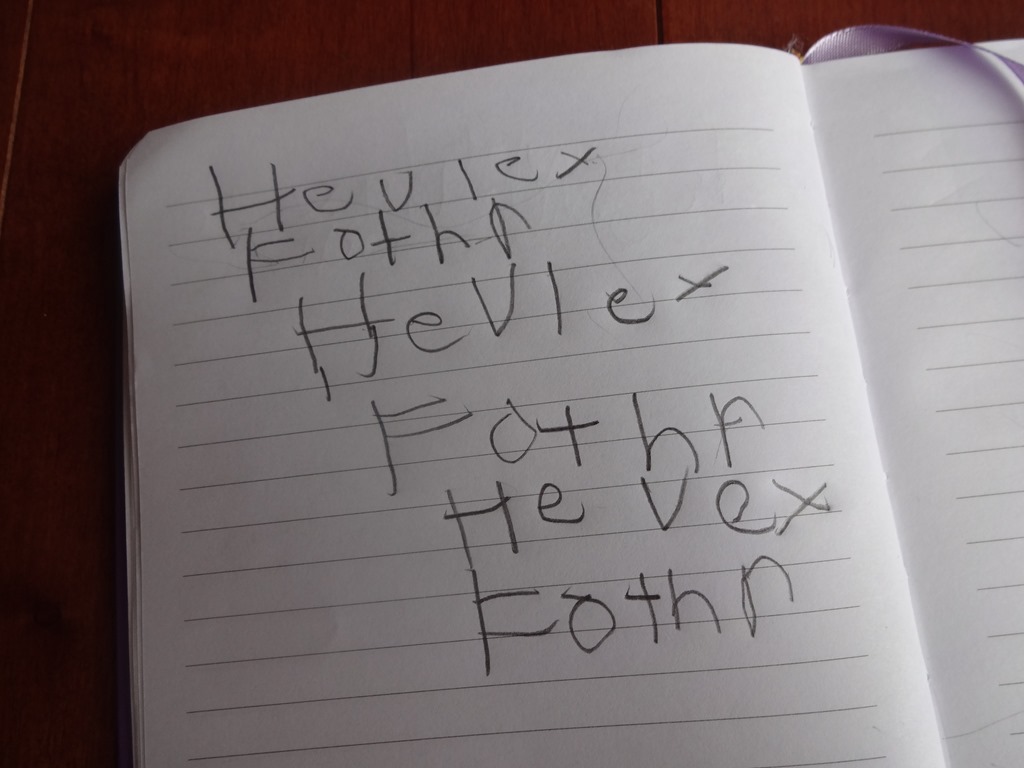 Hevlex
Fothr
Hevlex
Fothr
Hevex
Fothr